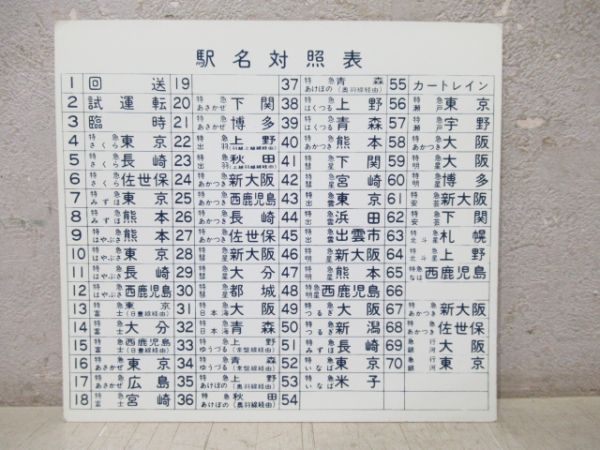 駅名対照表
1 回送
2 試運転
3 臨時
4 特急さくら 東京
5 特急さくら 長崎
6 特急さくら 佐世保
7 特急みずほ 東京
8 特急みずほ 熊本
9 特急はやぶさ 熊本
10 特急はやぶさ 東京
11 特急はやぶさ 長崎
12 特急はやぶさ 西鹿児島
13 特急富士 東京(日豊線経由)
14 特急富士 大分
15 特急富士 西鹿児島(日豊線経由)
16 特急あさかぜ 東京
17 特急あさかぜ 広島
18 特急富士 宮崎
19
20 特急あさかぜ 下関
21 特急あさかぜ 博多
22 特急出羽 上野
23 特急出羽 秋田
24 特急あかつき 新大阪
25 特急あかつき 西鹿児島
26 特急あかつき 長崎
27 特急あかつき 佐世保
28 特急明星 新大阪
29 特急彗星 大分
30 特急彗星 都城
31 特急日本海 大阪
32 特急日本海 青森
33 特急ゆうづる 上野(常盤線経由)
34 特急ゆうづる 青森(常盤線経由)
35 特急あけぼの 上野(奥羽線経由)
36 特急あけぼの 秋田(奥羽線経由)
37 特急あけぼの 青森(奥羽線経由)
38 特急はくつる 上野
39 特急はくつる 青森
40 特急あかつき 熊本
41 特急彗星 下関
42 特急彗星 宮崎
43 特急出雲 東京
44 特急出雲 浜田
45 特急出雲 出雲市
46 特急明星 新大阪
47 特急明星 熊本
48 特急明星 西鹿児島
49 特急つるぎ 大阪
50 特急つるぎ 新潟
51 特急みずほ 長崎
52 特急いなば 東京
53 特急いなば 米子
54
55 カートレイン
56 特急瀬戸 東京
57 特急瀬戸 宇野
58 特急あかつき 大阪
59 特急明星 大阪
60 特急明星 博多
61 特急安芸 新大阪
62 特急安芸 下関
63 特急北斗星 札幌
64 特急北斗星 上野
65 特急なは 西鹿児島
66
67 特急あかつき 新大阪
68 特急あかつき 佐世保
69 急行銀河 大阪
70 急行銀河 東京